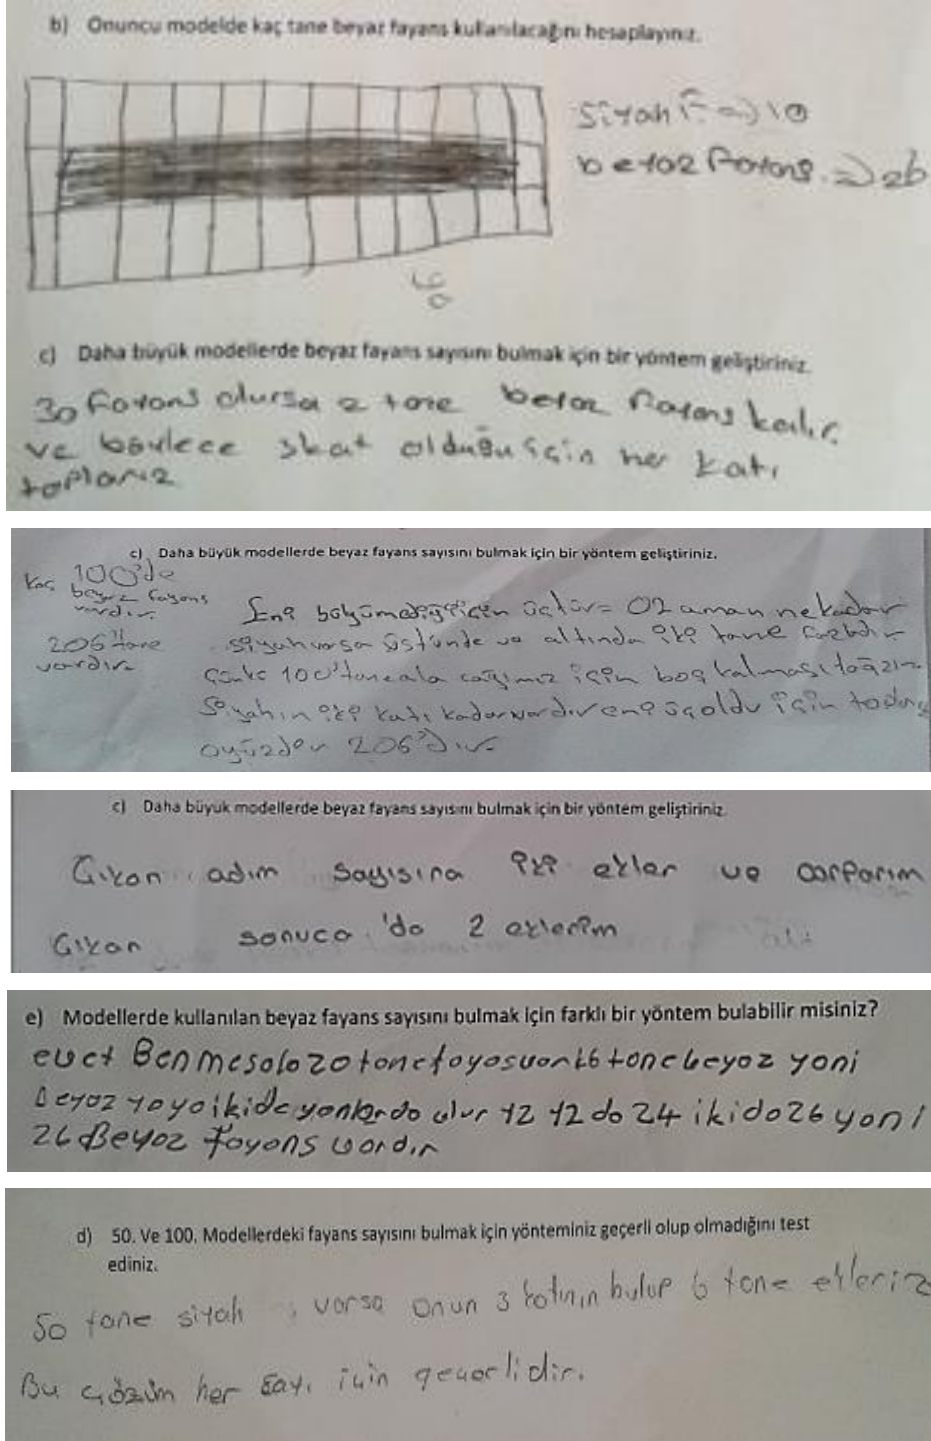 b) Onuncu modelde kaç tane beyaz fayans kullanılacağını hesaplayınız.
siyah f. => 10
beyaz fayans. => 26
c) Daha büyük modellerde beyaz fayans sayısını bulmak için bir yöntem geliştiriniz.
30 fayans olursa 2 tane beyaz fayans kalır.
ve böylece 3kat olduğu için her katı
toplarız
c) Daha büyük modellerde beyaz fayans sayısını bulmak için bir yöntem geliştiriniz.
100'de
kaç beyaz fayans
vardır.
206 tane
vardır.
Eni büyümediği için üçtür = 02 aman nekadar
siyah varsa üstünde ve altında iki tane fazladır
çünkü 100'tane ala cağımız için boş kalması lağzım
Siyahın iki katı kadar vardır eni üç oldu için
oyüzden 206'dır.
c) Daha büyük modellerde beyaz fayans sayısını bulmak için bir yöntem geliştiriniz.
Çıkan adım sayısına iki ekler ve çarparım
Çıkan sonuca 'da 2 eklerim
e) Modellerde kullanılan beyaz fayans sayısını bulmak için farklı bir yöntem bulabilir misiniz?
evet Ben mesala 20 tane fayas var 26 tane beyaz yani
Beyaz yoyo ikide yanlarda olur 12 12 da 24 iki da 26 yani
26 Beyaz fayans vardır
d) 50. Ve 100. Modellerdeki fayans sayısını bulmak için yönteminiz geçerli olup olmadığını test
ediniz.
50 tane siyah varsa onun 3 katının bulup 6 tane ekleriz
Bu çözüm her sayı için geçerlidir.